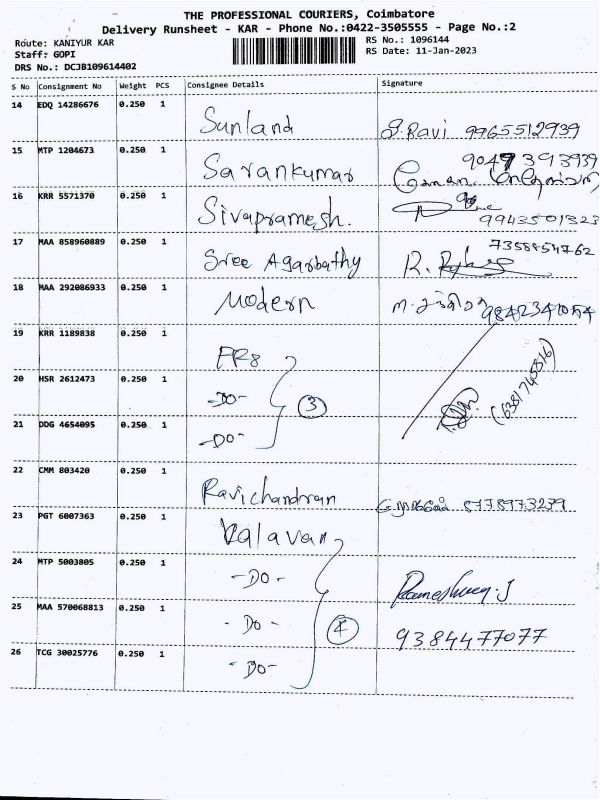 THE PROFESSIONAL COURIERS, Coimbatore
Delivery Runsheet - KAR - Phone No.:0422-3505555 - Page No.:2
Route: KANIYUR KAR
RS No.: 1096144
Staff: GOPI
RS Date: 11-Jan-2023
DRS No.: DCJB109614402
S No Consignment No Weight PCS Consignee Details Signature
14 EDQ 14286676 0.250 1 Sunland S. Ravi 9965512939
15 MTP 1204673 0.250 1 Sarankumar
16 KRR 5571370 0.250 1 Sivapramesh. 9943501323
17 MAA 858960889 0.250 1 Sree Agarbathy
18 MAA 292086933 0.250 1 Modern
19 KRR 1189838 0.250 1
20 HSR 2612473 0.250 1 -DO- 3 (6381745816)
21 DDG 4654095 0.250 1 -DO-
22 CMM 803420 0.250 1 Ravichandran 8778973279
23 PGT 6007363 0.250 1 Kalavan
24 MTP 5003805 0.250 1 -DO-
25 MAA 570068813 0.250 1 -DO- 4 9384477077
26 TCG 30025776 0.250 1 -DO-